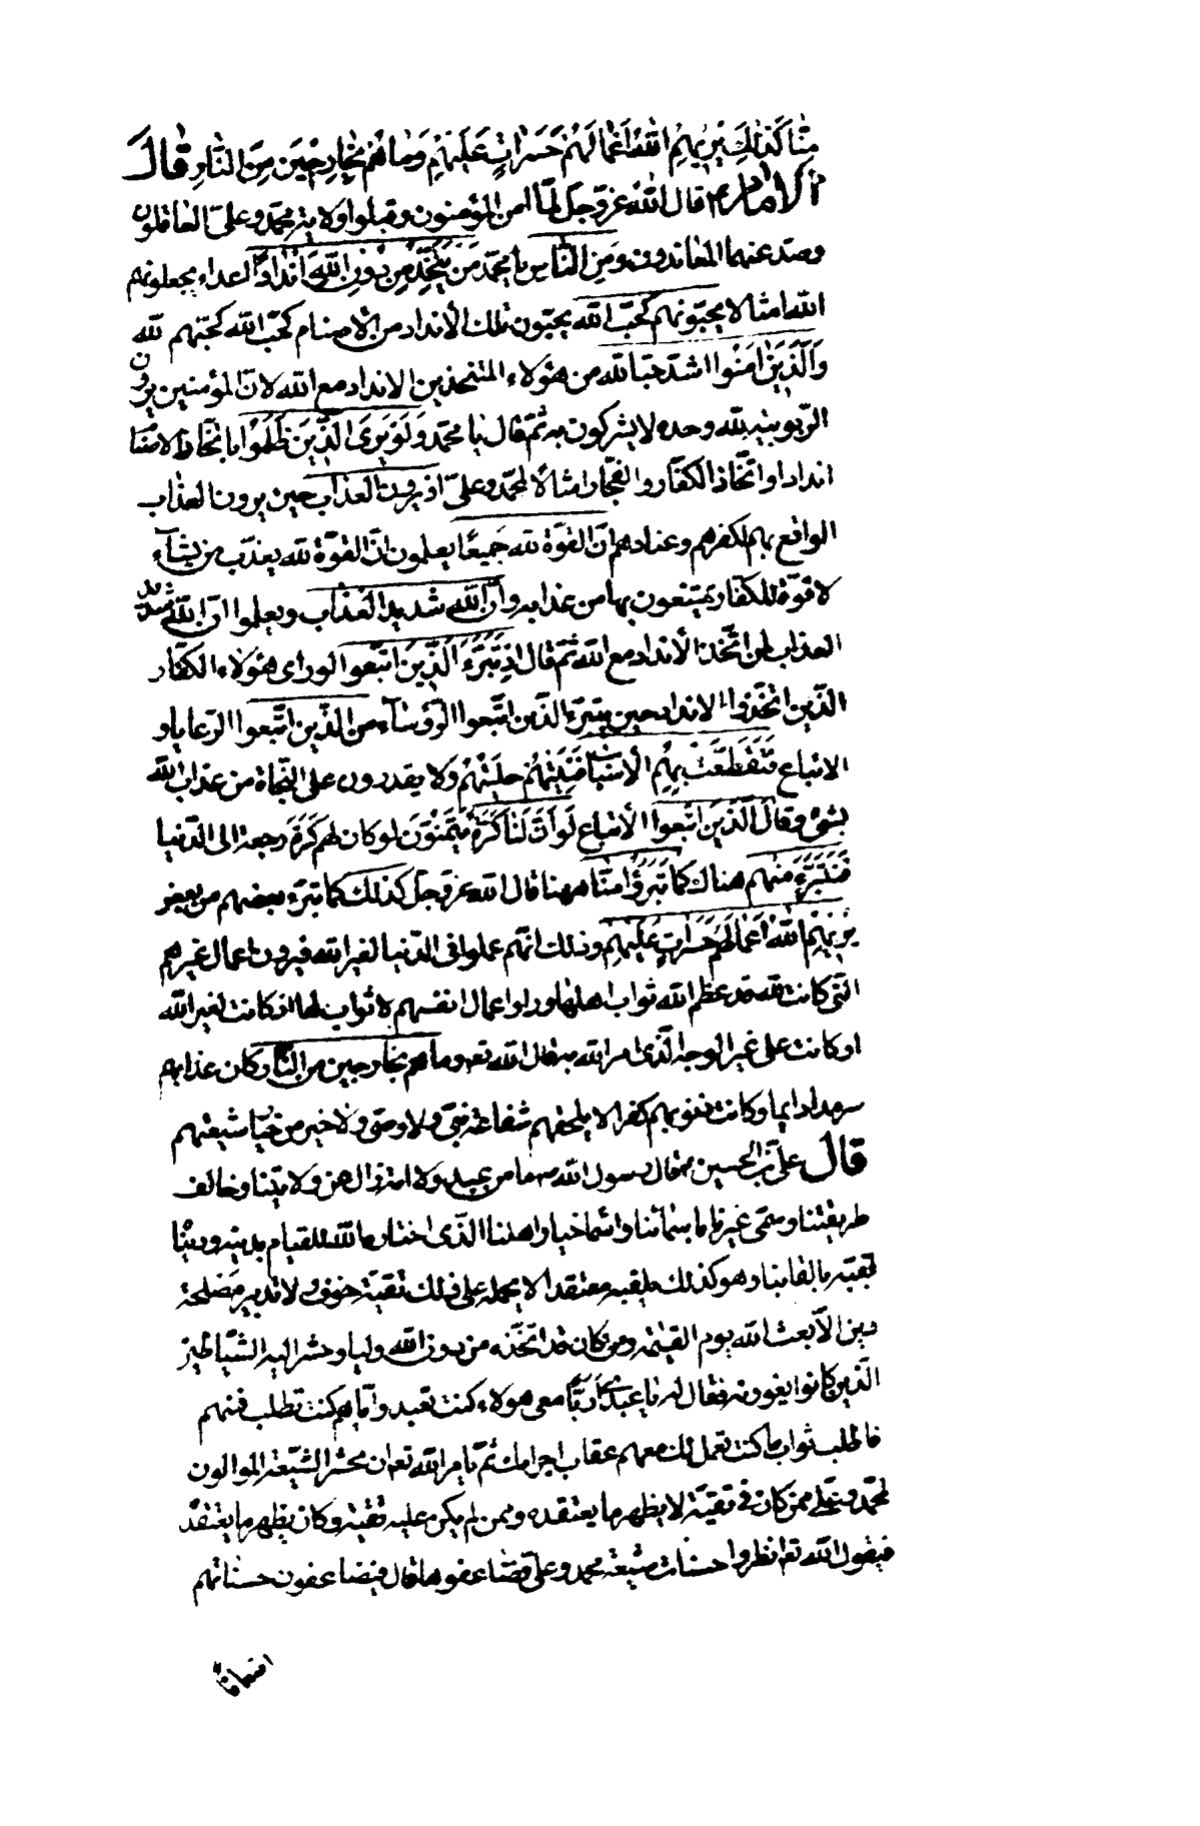 مِنَّا كَذٰلِكَ يُرِيهِمُ اللّٰهُ أَعْمَالَهُمْ حَسَرَاتٍ عَلَيْهِمْ وَمَاهُمْ بِخَارِجِينَ مِنَ النَّارِ قَالَ
الامام ع قال اللّه عزّ وجلّ لمّا امن المؤمنون وقبلوا ولاية محمّد وعلىّ العاقلون
وصدّ عنهما المعاندون ومن النّاس يا محمّد مَن يَتَّخِذُ مِن دُونِ اللّٰهِ أَنْدَادًا اعداء يجعلونهم
للّه امثالا يحبّونهم كحبّ اللّه يحبّون تلك الأنداد من الأصنام كحبّ اللّه كحبّهم للّه
وَالَّذِينَ اٰمَنُوا اشدّ حبّا للّه من هؤلاء المتّخذين الانداد مع اللّه لانّ المؤمنين يرون
الرّبوبيّة للّه وحده لا يشركون به ثمّ قال يا محمّد وَلَوْ يَرَى الَّذِينَ ظَلَمُوا باتّخاذ الاصنام
اندادا واتّخاذ الكفّار والفجّار امثالًا لمحمّد وعلىّ اذ يرون العذاب حين يرون العذاب
الواقع بهم لكفرهم وعنادهم انّ القوّة للّه جَمِيعًا يعلمون انّ القوّة للّه يعذّب من يشآء
لا قوّة للكفّار يمتنعون بها من عذابه وانّ اللّه شديد العذاب ويعلموا انّ اللّه شديد
العذاب لمن اتّخذ الأنداد مع اللّه ثمّ قال إِذْ تَبَرَّءَ الَّذِينَ اتُّبِعوا لو راى هؤلاء الكفّار
الّذين اتّخذوا الانداد حين يتبرّء الّذين اتّبعوا الرّؤسآء من الّذين اتّبعوا الرّعايا و
الاتباع وَتَقَطَّعَتْ بِهِمُ الْأَسْبَابُ فَنِيَتْ حيلتهم ولا يقدرون على النّجاة من عذاب اللّه
بشئ وقالَ الَّذِينَ اتّبعوا الأتباع لَوْ أَنَّ لَنَا كَرَّةً يَتَمَنَّوْنَ لو كان لهم كَرَّةً رجعة الى الدّنيا
فَنَتَبَرَّءَ منهم هناك كَمَا تَبَرَّؤُا مِنَّا هيهنا قال اللّه عزّ وجلّ كذلك كما تبرّء بعضهم من بعض
يُرِيهِمُ اللّٰهُ أَعْمَالَهُمْ حَسَرَاتٍ عَلَيْهِمْ وذلك انّهم عملوا فى الدّنيا لغير اللّه فيرون اعمال غيرهم
الّتى كانت للّه قد عظّم اللّه ثواب اهلها وراوا اعمال انفسهم لا ثواب لها اذ كانت لغير اللّه
او كانت على غير الوجه الّذى امر اللّه به قال اللّه تعم وما هم بخارجين من النّار وكان عذابهم
سرمدا دايما وكانت ذنوبهم كفرا لا يلحقهم شفاعة نبىّ ولا وصىّ ولا خير من خيار شيعتهم
قال علىّ بن الحسين ع قال رسول اللّه ص ما من عبد ولا امة زال عن ولايتنا وخالف
طريقتنا وسمّى غيرنا باسمائنا واسماء خيار اهلنا الّذى اختاره اللّه للقيام بدينه ودنياه
ولقّبه بالقابنا وهو كذلك يلقّبه معتقدا لا يحمله على ذلك تقيّة خوف ولا تدبير مصلحة
دين الّا بعثه اللّه يوم القيمة ومن كان قد اتّخذه من دون اللّه وليا وحشر اليه الشّياطين
الّذين كانوا يغوونه فقال له يا عبدى أَرَبًّا معى هؤلاء كنت تعبد وايّاهم كنت تطلب فمنهم
فاطلب ثواب ما كنت تعمل لك معهم عقاب اجرامك ثمّ يامر اللّه تعم ان يحشر الشّيعة الموالون
لمحمّد وعلى ممّن كان فى تقيّة لا يظهر ما يعتقده وممن لم يكن عليه تقيّة وكان يظهر ما يعتقد
فيقول اللّه تعم انظروا حسنات شيعة محمد وعلىّ فضاعفوها قال فيضاعفون حسناتهم
اضعافا